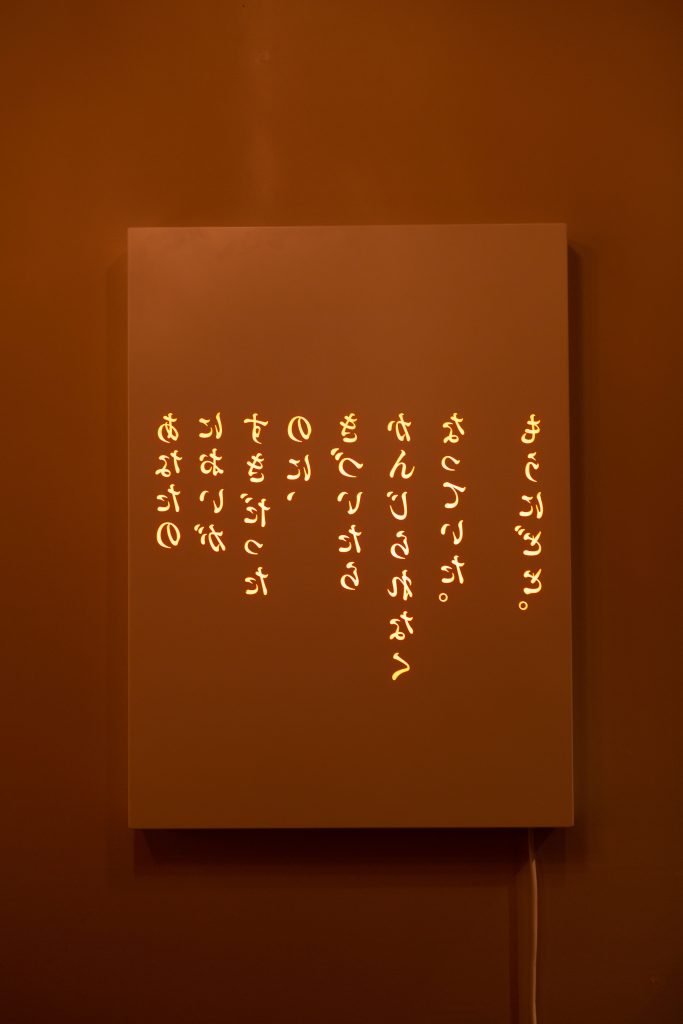 あなたの
においが
すきだった
のに、
きづいたら
かんじられなく
なっていた。
もうにどと。